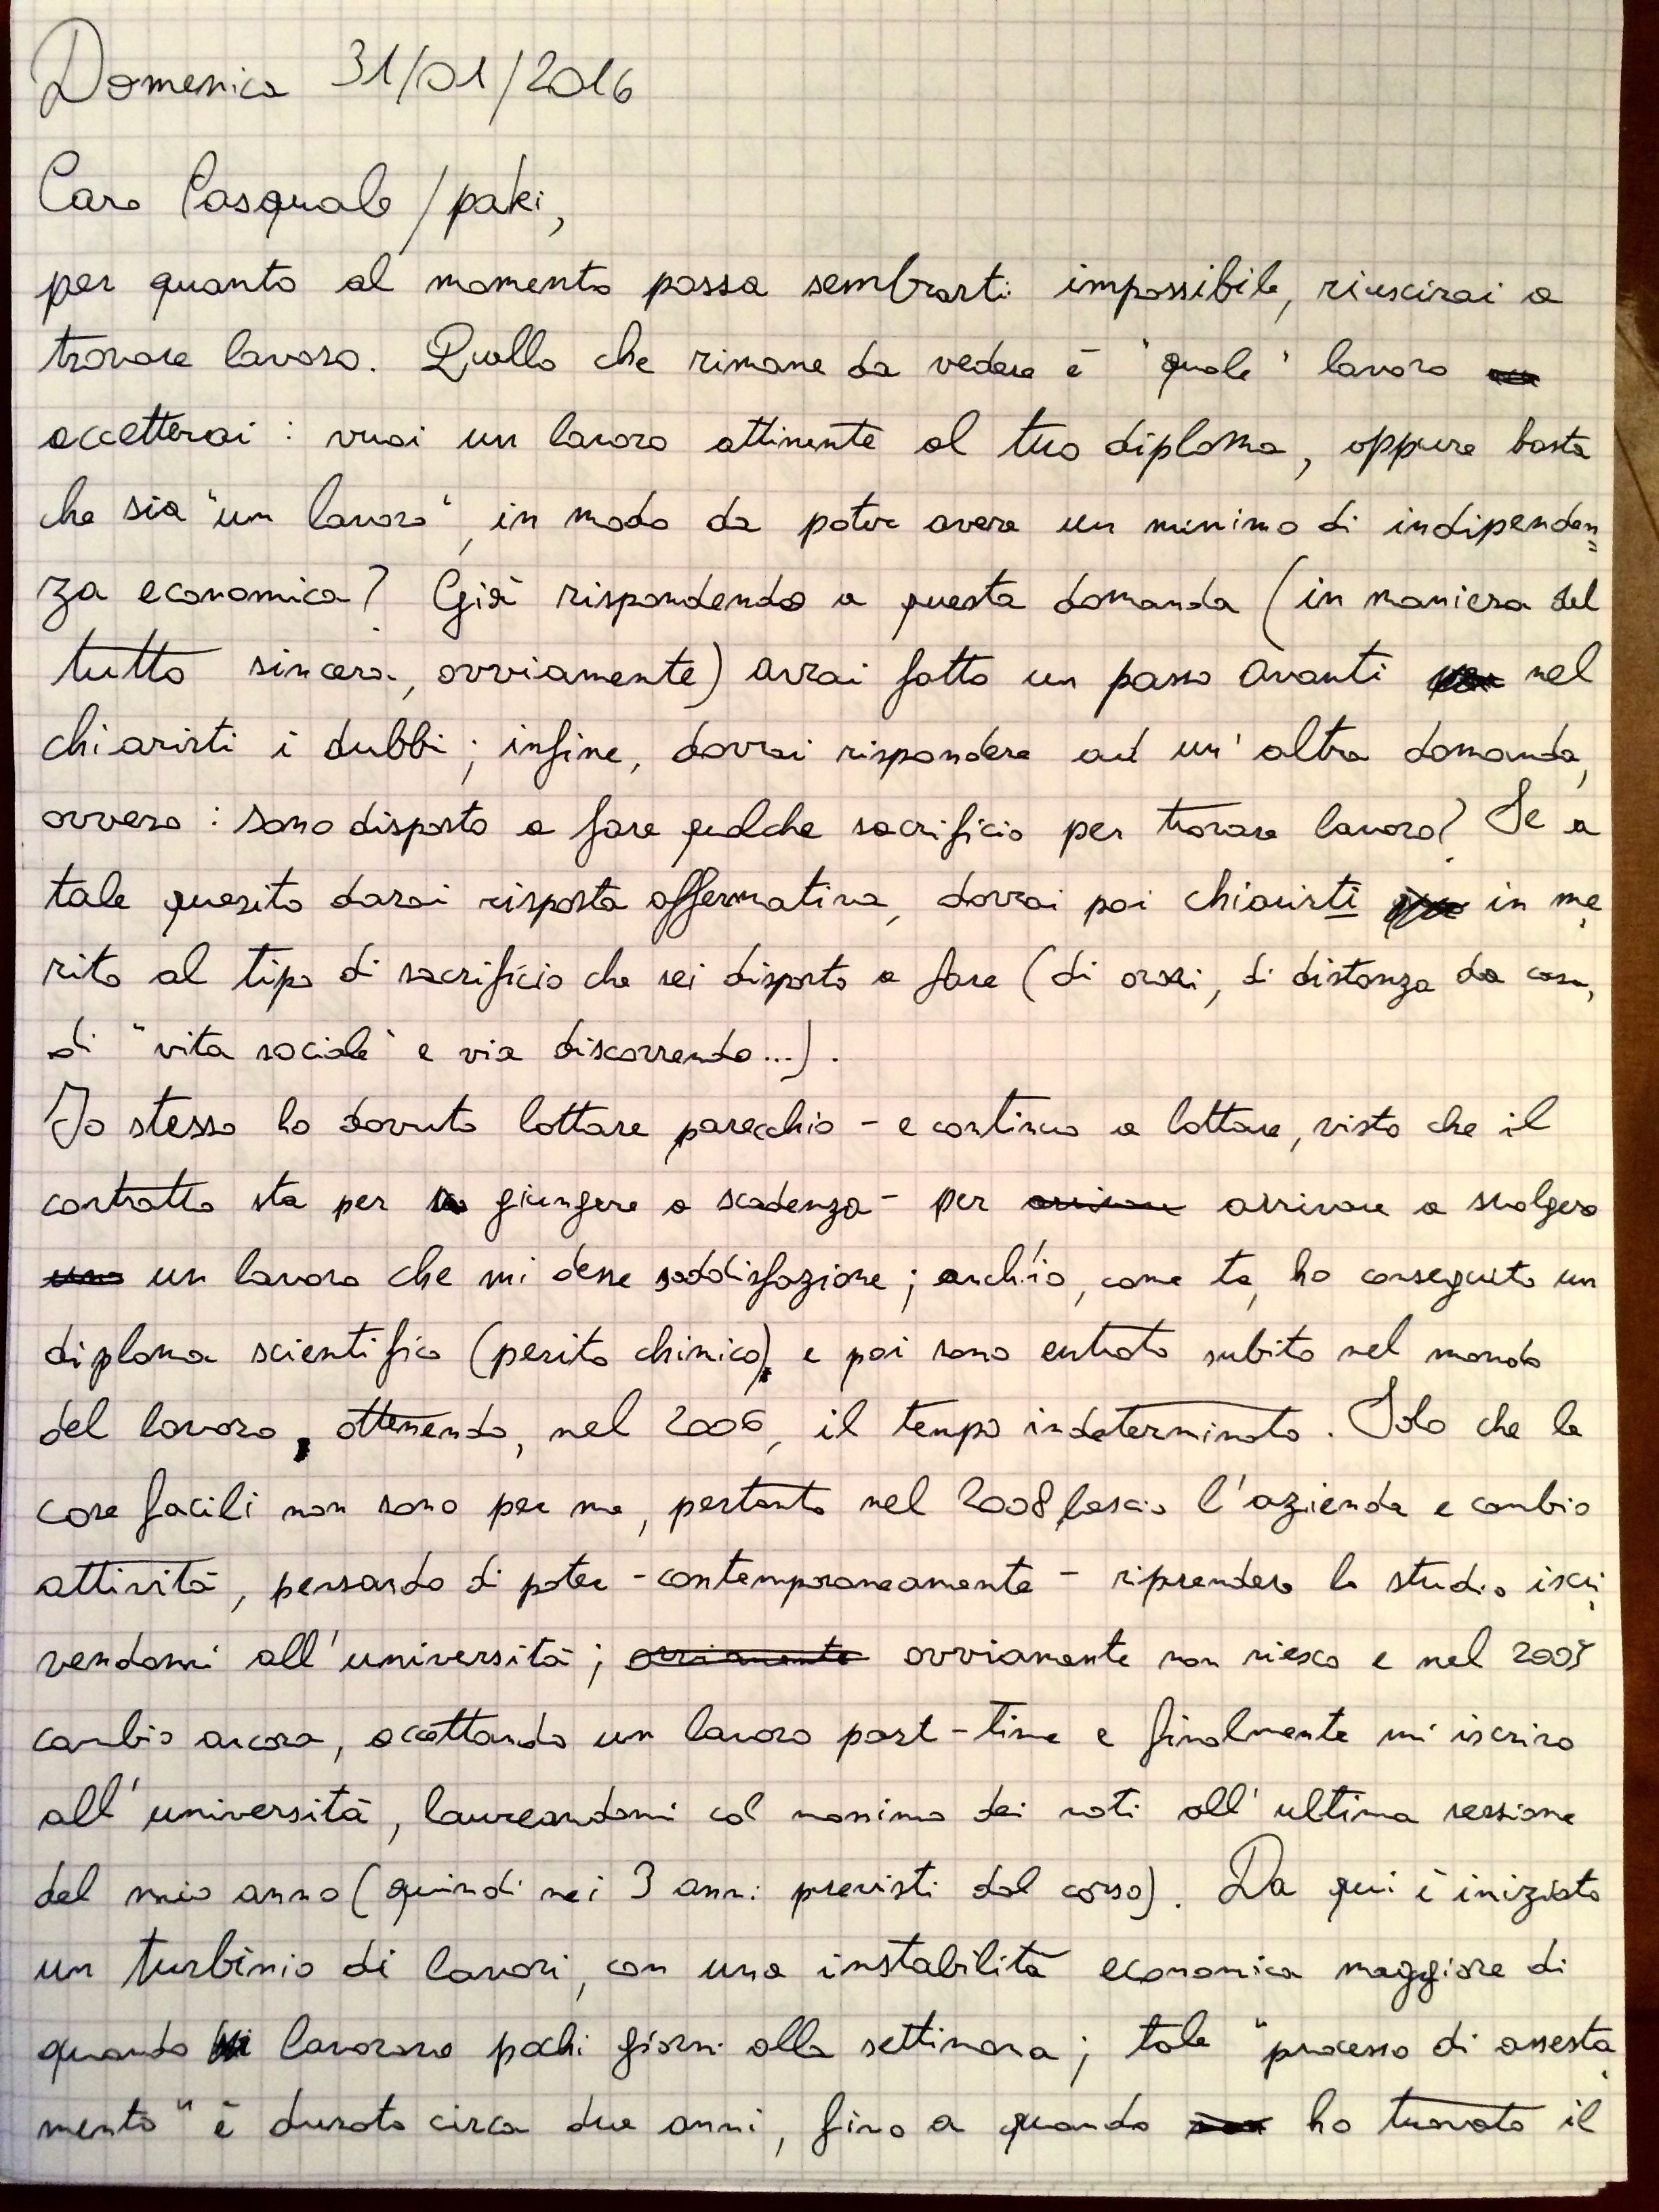 Domenica 31/01/2016
Caro Pasquale/paki,
per quanto al momento possa sembrarti impossibile, riuscirai a
trovare lavoro. Quello che rimane da vedere è "quale" lavoro
accetterai: vuoi un lavoro attinente al tuo diploma, oppure basta
che sia "un lavoro", in modo da poter avere un minimo di indipenden=
za economica? Già rispondendo a questa domanda (in maniera del
tutto sincera, ovviamente) avrai fatto un passo avanti nel
chiarirti i dubbi; infine, dovrai rispondere ad un'altra domanda,
ovvero: sono disposto a fare qualche sacrificio per trovare lavoro? Se a
tale quesito darai risposta affermativa, dovrai poi chiarirti in me
rito al tipo di sacrificio che sei disposto a fare (di orari, di distanza da casa,
di "vita sociale" e via discorrendo...).
Io stesso ho dovuto lottare parecchio - e continuo a lottare, visto che il
contratto sta per giungere a scadenza - per arrivare a svolgere
un lavoro che mi desse soddisfazione; anch'io, come te, ho conseguito un
diploma scientifico (perito chimico) e poi sono entrato subito nel mondo
del lavoro, ottenendo, nel 2006, il tempo indeterminato. Solo che le
cose facili non sono per me, pertanto nel 2008 lascio l'azienda e cambio
attività, pensando di poter - contemporaneamente - riprendere lo studio iscri
vendomi all'università; ovviamente non riesco e nel 2009
cambio ancora, accettando un lavoro part-time e finalmente mi iscrivo
all'università, laureandomi col massimo dei voti all'ultima sessione
del mio anno (quindi nei 3 anni previsti dal corso). Da qui è iniziato
un turbinio di lavori, con una instabilità economica maggiore di
quando lavoravo pochi giorni alla settimana; tale "processo di assesta
mento" è durato circa due anni, fino a quando ho trovato il